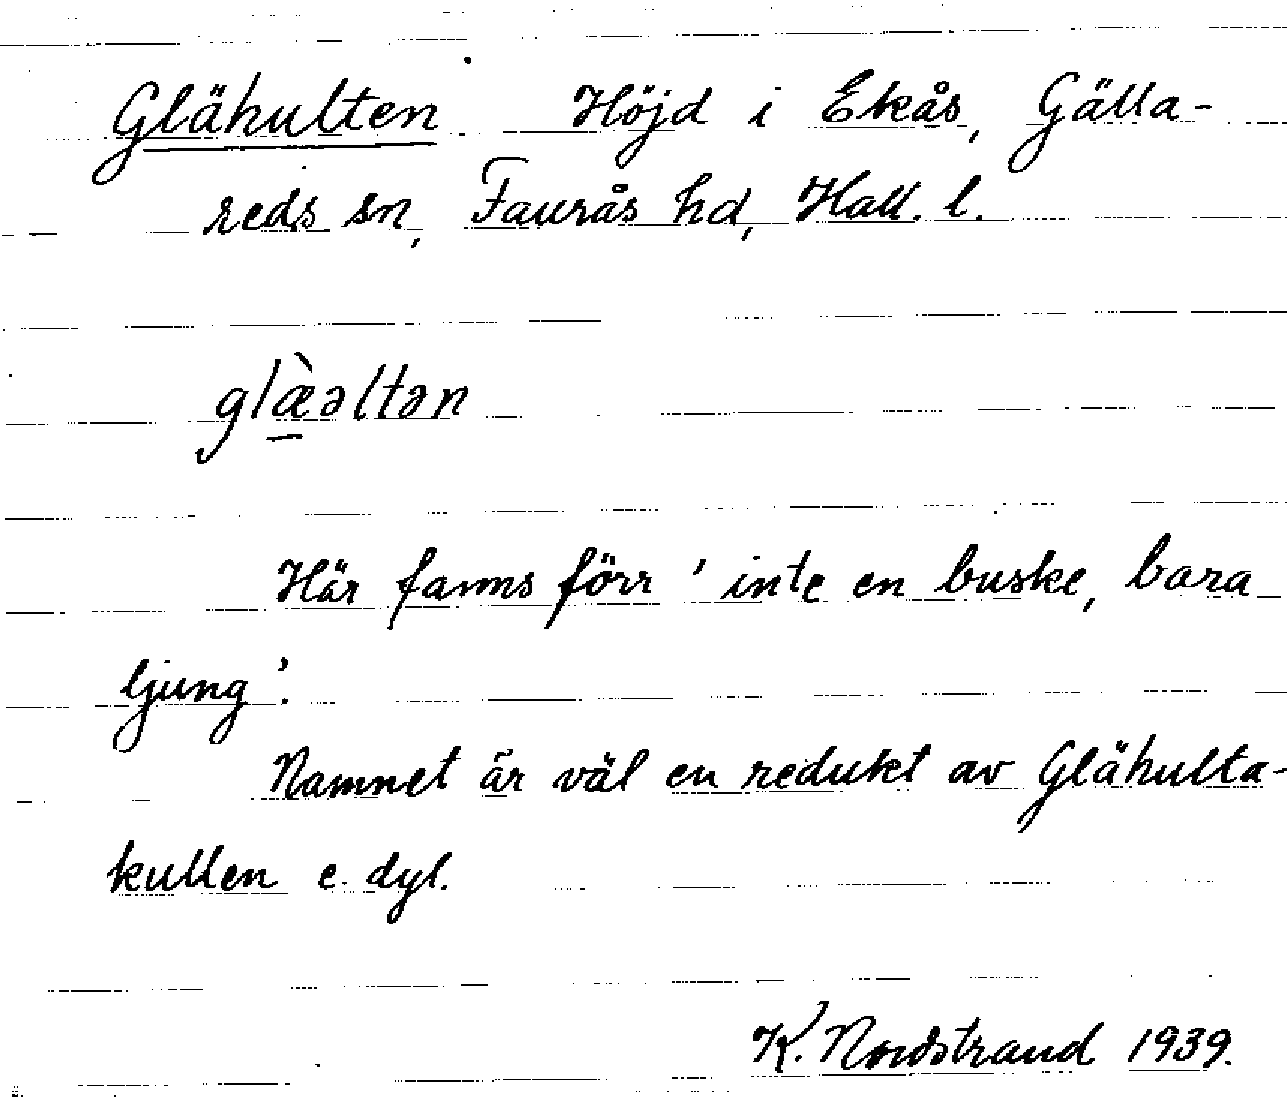 Glähulten Höjd i Ekås, Gälla-
reds sn, Faurås hd, Hall. l.
glæ̱̀əltən
Här fanns förr 'inte en buske, bara
ljung'.
Namnet är väl en redukt av Glähulta-
kullen e. dyl.
K. Nordstrand 1939.